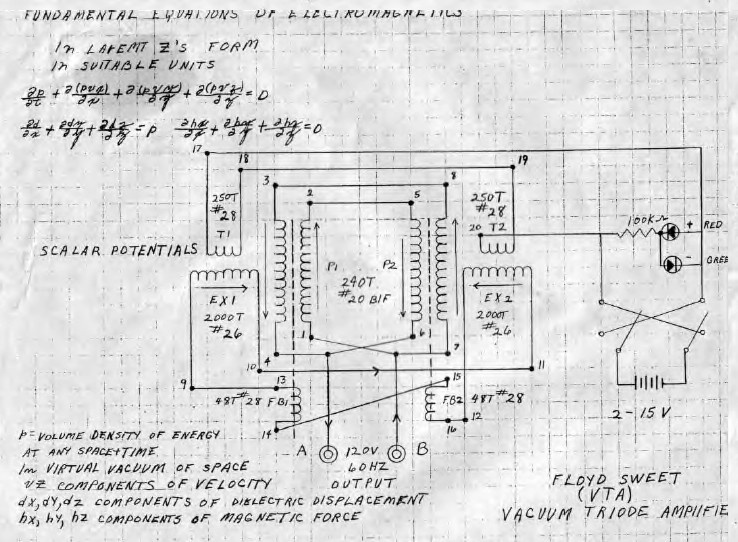 FUNDAMENTAL EQUATIONS OF ELECTROMAGNETICS
In LAFEMT Z'S FORM
In SUITABLE UNITS
17
18
19
3
2
5
8
250T
#28
T1
250T
#28
20 T2
100KΩ
+
RED
-
GREE
SCALAR POTENTIALS
P1
P2
240T
#20 BIF
EX1
2000T
#26
EX2
2000T
#26
1
6
4
7
10
11
9
13
15
48T #28 FB1
FB2 48T #28
14
16
12
2-15V
A
120V
B
60HZ
OUTPUT
P=VOLUME DENSITY OF ENERGY
AT ANY SPACE+TIME
In VIRTUAL VACUUM OF SPACE
VZ COMPONENTS OF VELOCITY
dX, dY, dZ COMPONENTS OF DIELECTRIC DISPLACEMENT
hX, hY, hZ COMPONENTS OF MAGNETIC FORCE
FLOYD SWEET
(VTA)
VACUUM TRIODE AMPIIFIE